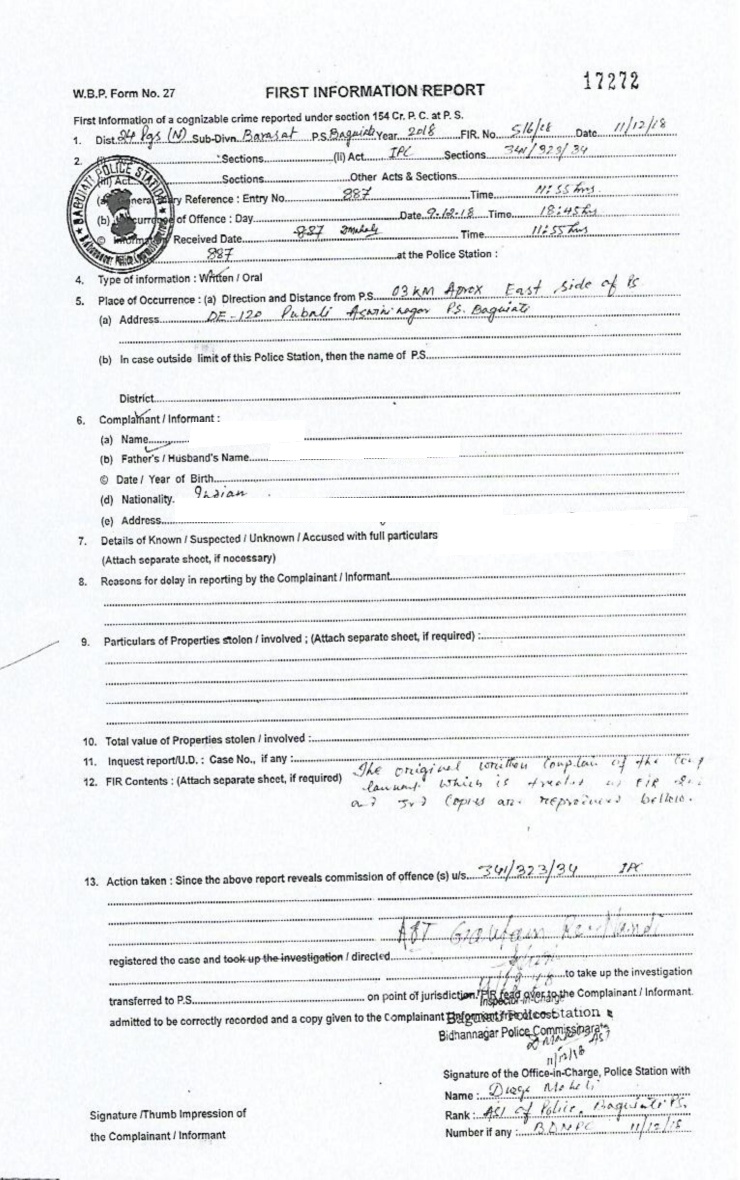 17272
W.B.P. Form No. 27 FIRST INFORMATION REPORT
First Information of a cognizable crime reported under section 154 Cr. P. C. at P. S.
1. Dist. 24 Pgs (N) Sub-Divn. Barasat P.S. Baguiati Year 2018 FIR. No. 516/18 Date 11/12/18
2. Sections (ii) Act IPC Sections 341/323/34
(iii) Act Sections Other Acts & Sections
(a) General Diary Reference : Entry No. 887 Time 11:55 hrs
(b) Occurrence of Offence : Day Date 9-12-18 Time 18:45 hrs
© Information Received Date 887 Time 11:55 hrs
887 at the Police Station :
BAGUIATI POLICE STATION
4. Type of information : Written / Oral
5. Place of Occurrence : (a) Direction and Distance from P.S. 03 KM Aprox East side of PS
(a) Address DE-120 Pubali Aswininagar PS. Baguiati
(b) In case outside limit of this Police Station, then the name of P.S.
District
6. Complainant / Informant :
(a) Name
(b) Father's / Husband's Name
© Date / Year of Birth
(d) Nationality. Indian
(e) Address
7. Details of Known / Suspected / Unknown / Accused with full particulars
(Attach separate sheet, if necessary)
8. Reasons for delay in reporting by the Complainant / Informant
9. Particulars of Properties stolen / involved ; (Attach separate sheet, if required) :
10. Total value of Properties stolen / involved :
11. Inquest report/U.D. : Case No., if any :
The original written Complain of the Comp
12. FIR Contents : (Attach separate sheet, if required) lainant which is treated as FIR
and 3rd Copies are reproduced bellow.
13. Action taken : Since the above report reveals commission of offence (s) u/s. 341/323/34 IPC
ASI
registered the case and took up the investigation / directed
to take up the investigation
transferred to P.S. on point of jurisdiction. FIR read over to the Complainant / Informant.
Inspector-in-Charge
admitted to be correctly recorded and a copy given to the Complainant
Baguiati Police Station
Bidhannagar Police Commissionarate
ASI
11/12/18
Signature of the Office-in-Charge, Police Station with
Name : Durga
Rank : ASI of Police, Baguiati PS.
Number if any : BDNPC 11/12/18
Signature /Thumb Impression of
the Complainant / Informant